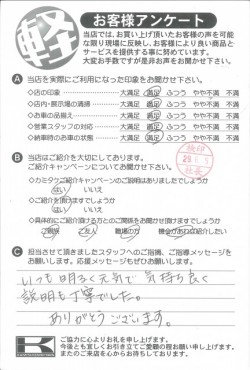 軽
お客様アンケート
当店では、お買い上げ頂いたお客様の声を可能
な限り現場に反映し、お客様により良い商品と
サービスを提供する事に努めています。
大変お手数ですが是非お声をお聞かせ下さい。
A 当店を実際にご利用になった印象をお聞かせ下さい。
◇店の印象 大満足 満足 ふつう やや不満 不満
◇店内・展示場の清掃 大満足 満足 ふつう やや不満 不満
◇お車の品揃え 大満足 満足 ふつう やや不満 不満
◇営業スタッフの対応 大満足 満足 ふつう やや不満 不満
◇納車時の状態 大満足 満足 ふつう やや不満 不満
B 当店はご紹介を大切にしております。
ご紹介キャンペーンについてお聞かせ下さい。
検印
29.4.5
社長
◇カミタケご紹介キャンペーンのご説明はありましたでしょうか
はい いいえ
◇ご紹介を頂けますでしょうか
はい いいえ
◇具体的にご紹介頂ける方とのご関係をお聞かせ頂けますでしょうか
ご親族 ご友人 職場の方 機会があれば紹介したい
C 担当させて頂きましたスタッフへのご指摘、ご指導メッセージを
お願いします。応援メッセージもぜひお願いします。
いつも明るく元気で気持ち良く
説明も丁寧でした。
ありがとうございます。
K
ご協力に心よりお礼を申し上げます。
今後とも宜しくお引き立てご愛顧の程お願い申し上げます。
またのご来店を心からお待ちしております。